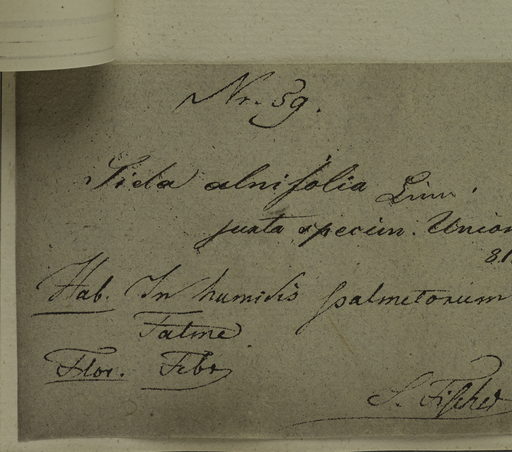 Nr. 59.
Sida alnifolia Linn.
juxta specim. Union
81
Hab. In humidis palmetorum
Fatme
Flor. Febr
S. Fischer